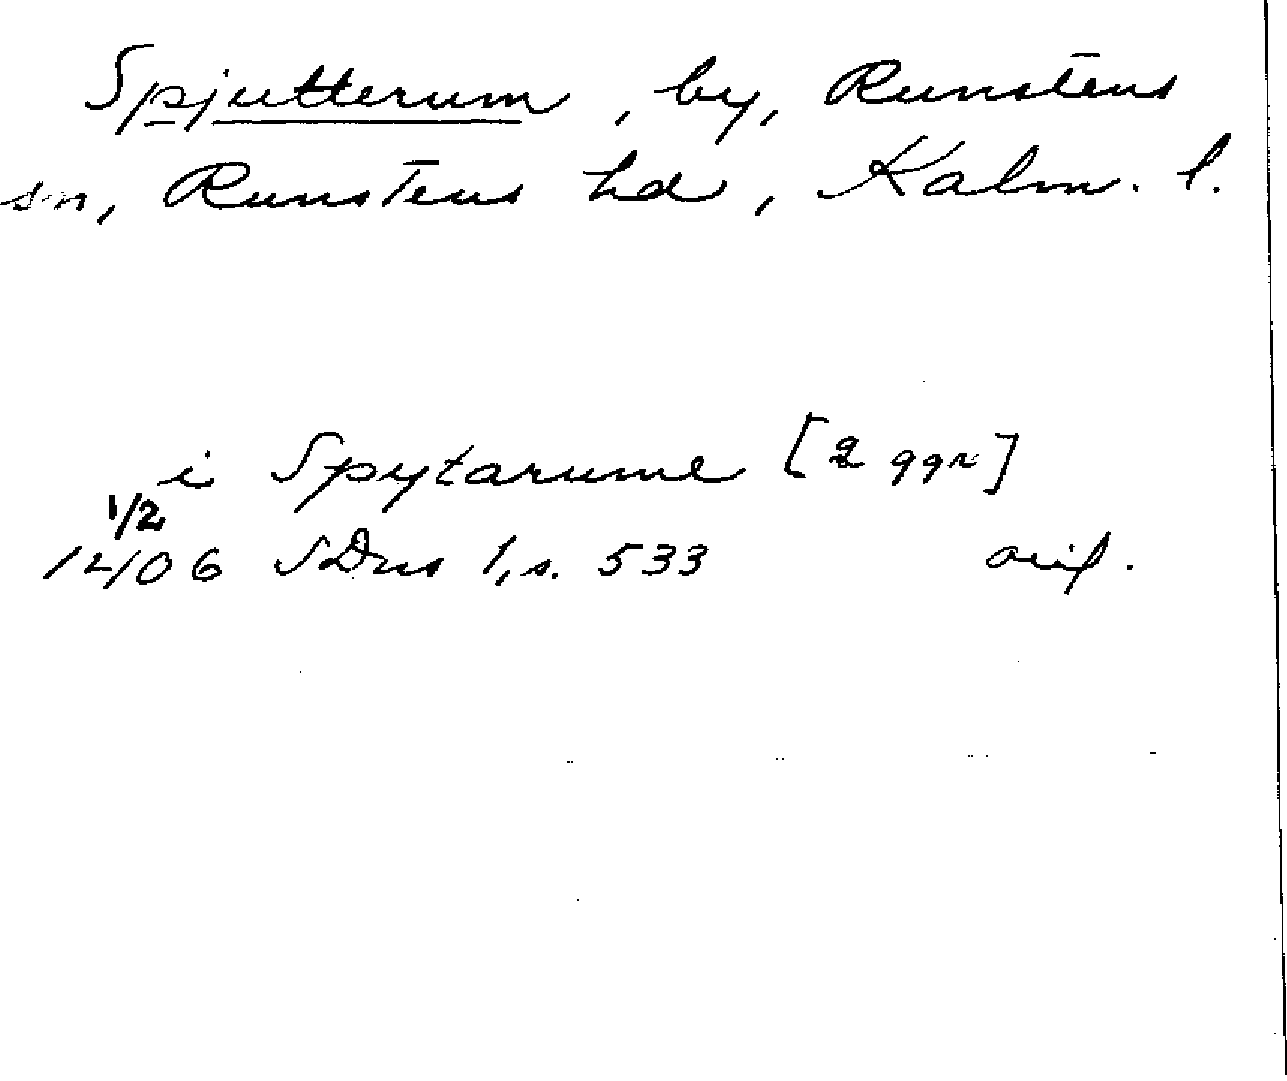 Spjutterum, by, Runstens
sn, Runstens hd, Kalm. l.
i Spytarume [2 ggr]
1/2
1406 SDns 1, s. 533 orig.